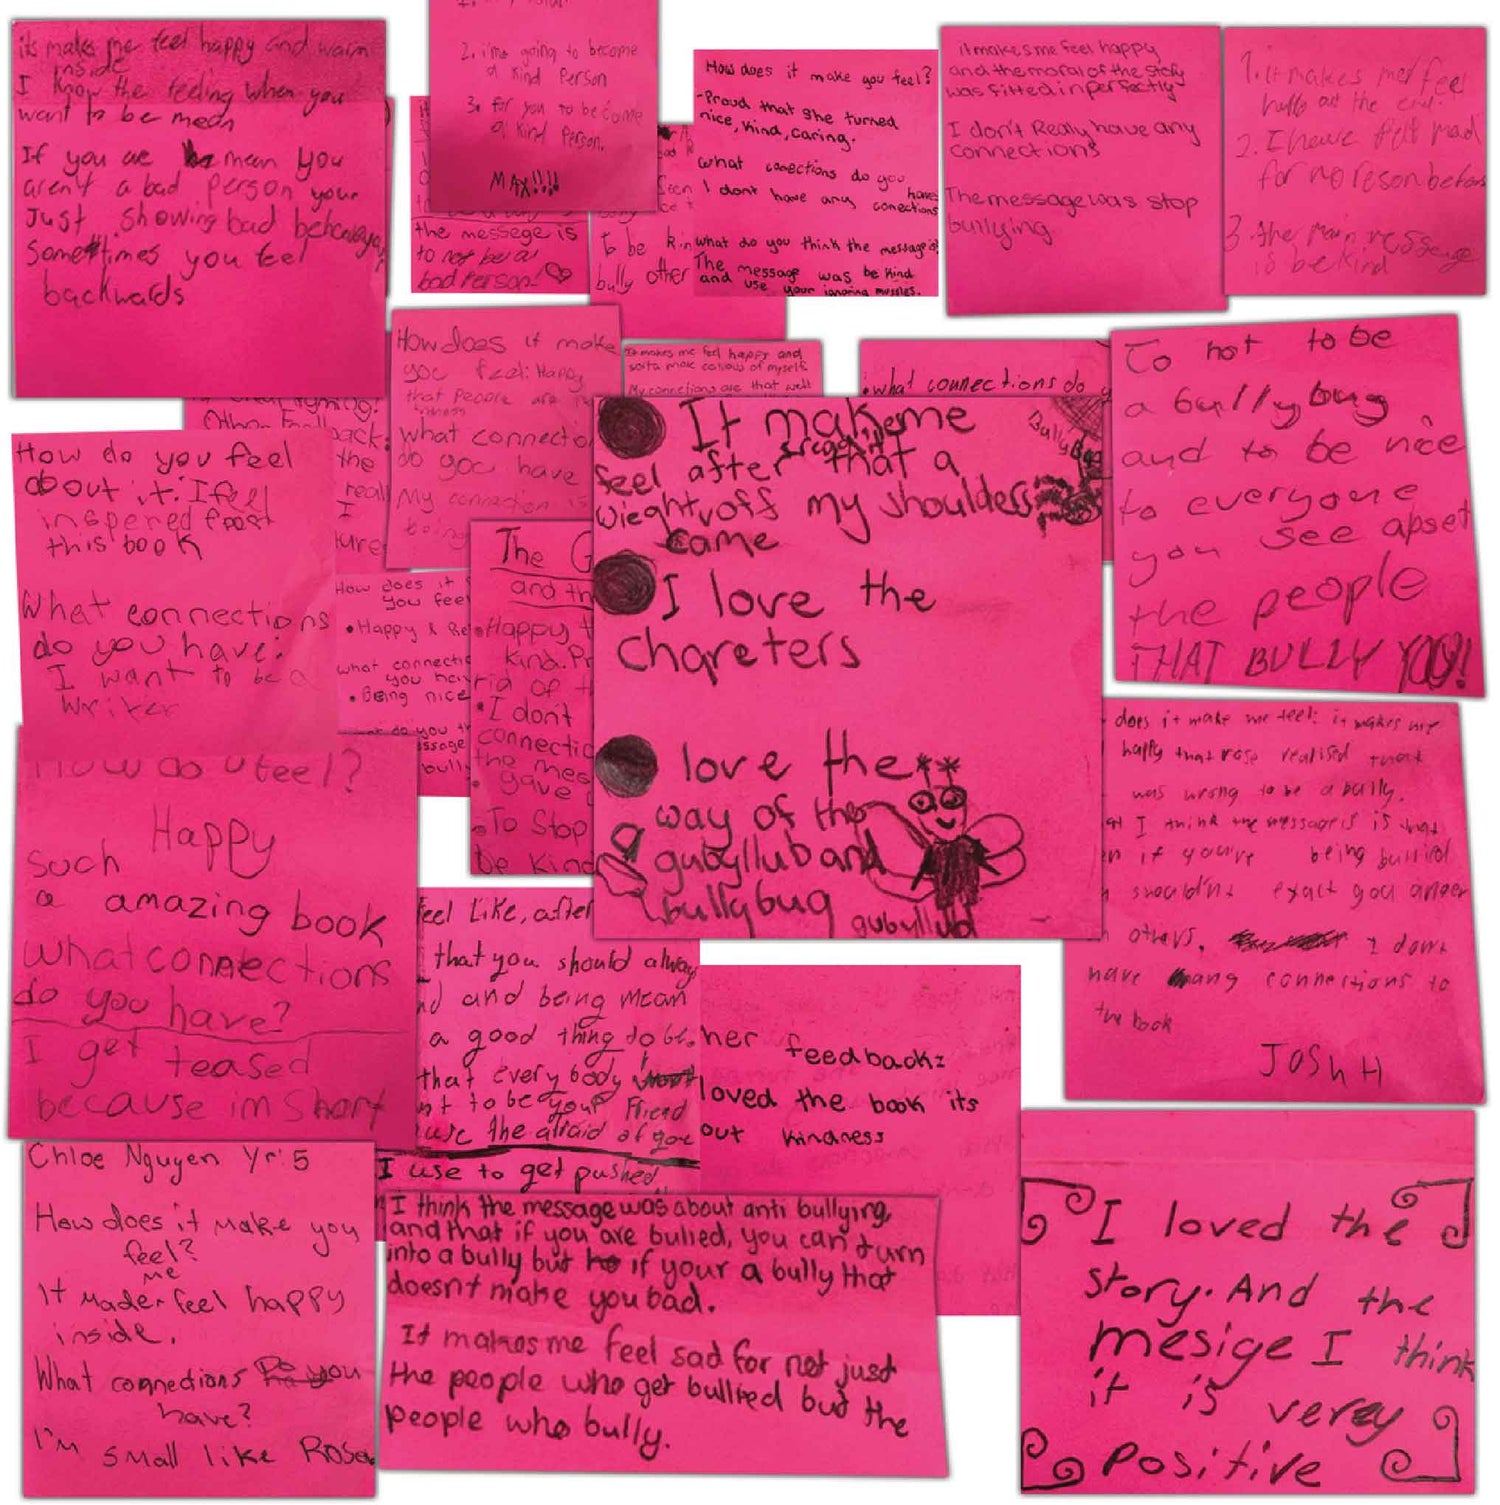 its makes me feel happy and warm
inside
I know the feeling when you
want to be mean
If you are mean you
aren't a bad person your
Just showing bad
Sometimes you feel
backwards
2. i'me going to become
a kind Person
3. for you to become
a kind Person.
MAX!!!!
the messege is
to not be a
bad Person!
To be kin
bully other
How does it make you feel?
-Proud that she turned
nice, kind, caring.
what conections do you
have
I dont have any conections
what do you think the message is?
The message was be kind
and use your ignoring mussles.
it makes me feel happy
and the moral of the story
was fitted in perfectly
I don't Realy have any
connections
The message was stop
bullying
1. it makes me feel
at the end.
2. I have felt mad
for no reson before
3. the main message
is be kind
How does it make
you feel: Happy
that people are
what connectio
do you have
My connection is
being
It makes me feel happy and
My connections are that
what connections do y
To not to be
a bully bug
and to be nice
to everyone
you see apset
the people
THAT BULLY YOU!
How do you feel
about it: I feel
inspered from
this book
What connections
do you have:
I want to be a
writer
Other Feedback:
the
reall
I
How does it
you feel
• Happy &
what connectio
you hav
• Being nice
The G
and th
Happy t
kind. Pr
rid of th
• I don't
connectio
the mes
gave
To Stop
be kind
It make me
feel after that a
wieght off my shoulders
came
Bully Bug
I love the
chareters
love the
way of the
gubyllub and
bullybug
gubyllub
does it make me feel: it makes me
happy that rose realised that
was wrong to be a bully.
I think the message is that
if youre being bullied
shouldn't exact you anger
others. I dont
have many connections to
the book
JOSH H
How do u feel?
Happy
such
a amazing book
what connections
do you have?
I get teased
because im short
feel Like, after
that you should alway
and being mean
a good thing to be.
that every body
nt to be your Friend
the afraid of you
I use to get pushed
her feedback:
loved the book its
out kindness
Chloe Nguyen Yr: 5
How does it make you
feel?
me
It made feel happy
inside.
What connections Do you
have?
I'm small like Rose
I think the message was about anti bullying,
and that if you are bulied, you can turn
into a bully but if your a bully that
doesn't make you bad.
It makes me feel sad for not just
the people who get bullied but the
people who bully.
I loved the
story. And the
mesige I think
it is verey
positive